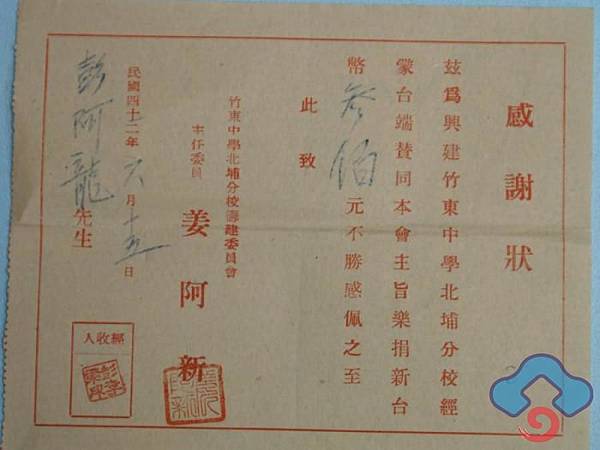 感謝狀
茲爲興建竹東中學北埔分校經
蒙台端賛同本會主旨樂捐新台
幣叁佰元不勝感佩之至
此致
竹東中學北埔分校籌建委員會
主任委員
姜阿新
民國四十二年六月十五日
彭阿龍先生
經收人